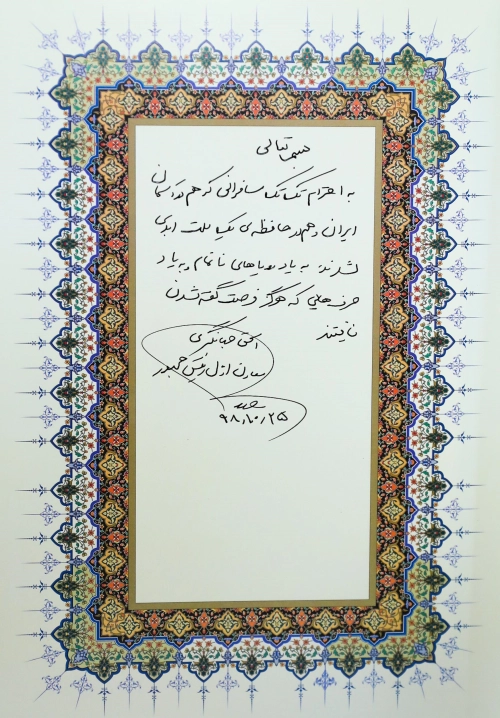 بسمه تعالی
به احترام تک تک مسافرانی که هم در آسمان
ایران و هم در حافظه‌ی یک ملت ابدی
شدند. به یاد رویاهای ناتمام و به یاد
حرف‌هایی که هرگز فرصت گفته شدن
نیافتند
اسحق جهانگیری
معاون اول رئیس جمهور
۹۸،۱۰،۲۵